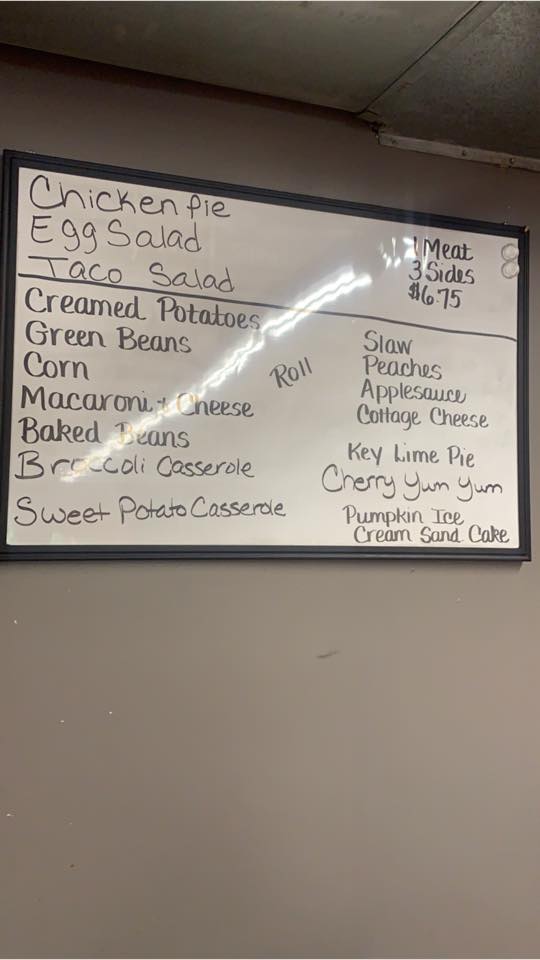 Chicken Pie
Egg Salad
Taco Salad
1 Meat
3 Sides
$6.75
Creamed Potatoes
Green Beans
Corn
Macaroni + Cheese
Baked Beans
Broccoli Casserole
Sweet Potato Casserole
Roll
Slaw
Peaches
Applesauce
Cottage Cheese
Key Lime Pie
Cherry Yum Yum
Pumpkin Ice
Cream Sand Cake